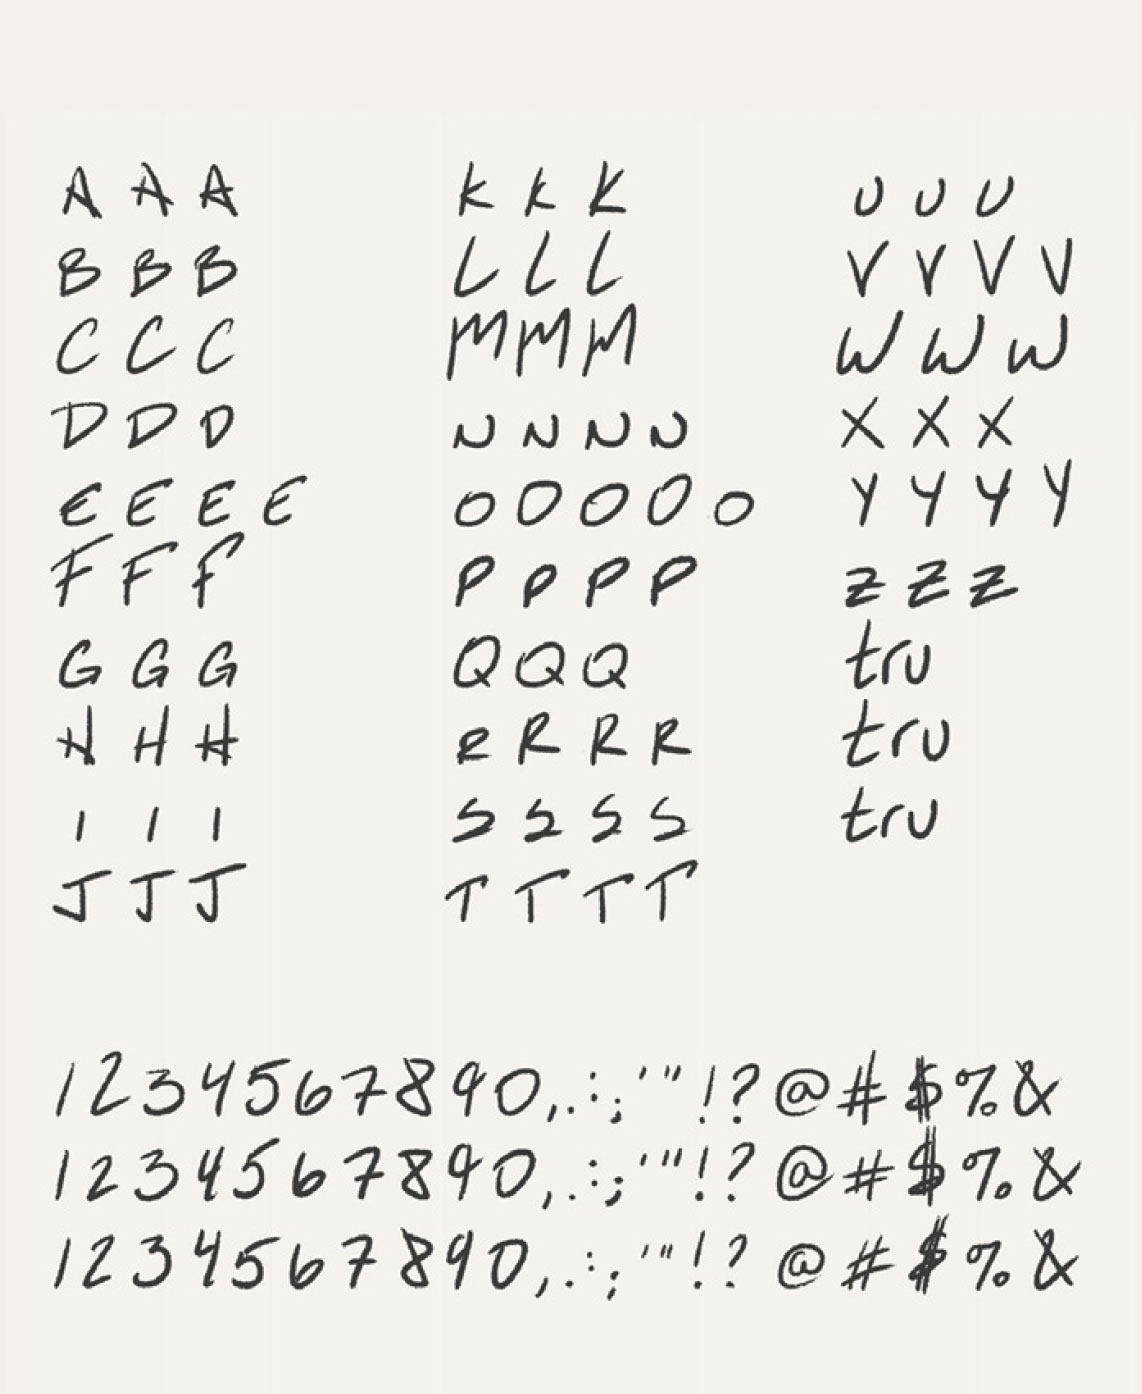 A A A
B B B
C C C
D D D
E E E E
F F F
G G G
H H H
I I I
J J J
K K K
L L L
M M M
N N N N
O O O O O
P P P P
Q Q Q
R R R R
S S S S
T T T T
U U U
V V V V
W W W
X X X
Y Y Y Y
Z Z Z
tru
tru
tru
1 2 3 4 5 6 7 8 9 0 , . : ; ' " ! ? @ # $ % &
1 2 3 4 5 6 7 8 9 0 , . : ; ' " ! ? @ # $ % &
1 2 3 4 5 6 7 8 9 0 , . : ; ' " ! ? @ # $ % &